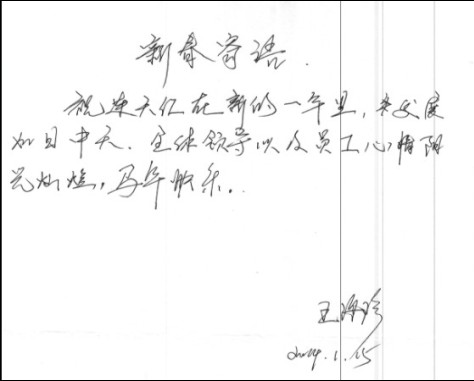 新春寄语.
祝连天仁在新的一年里,发展
如日中天.全体领导以及员工心情阳
光灿烂,马年快乐.
王海珍
2014.1.15